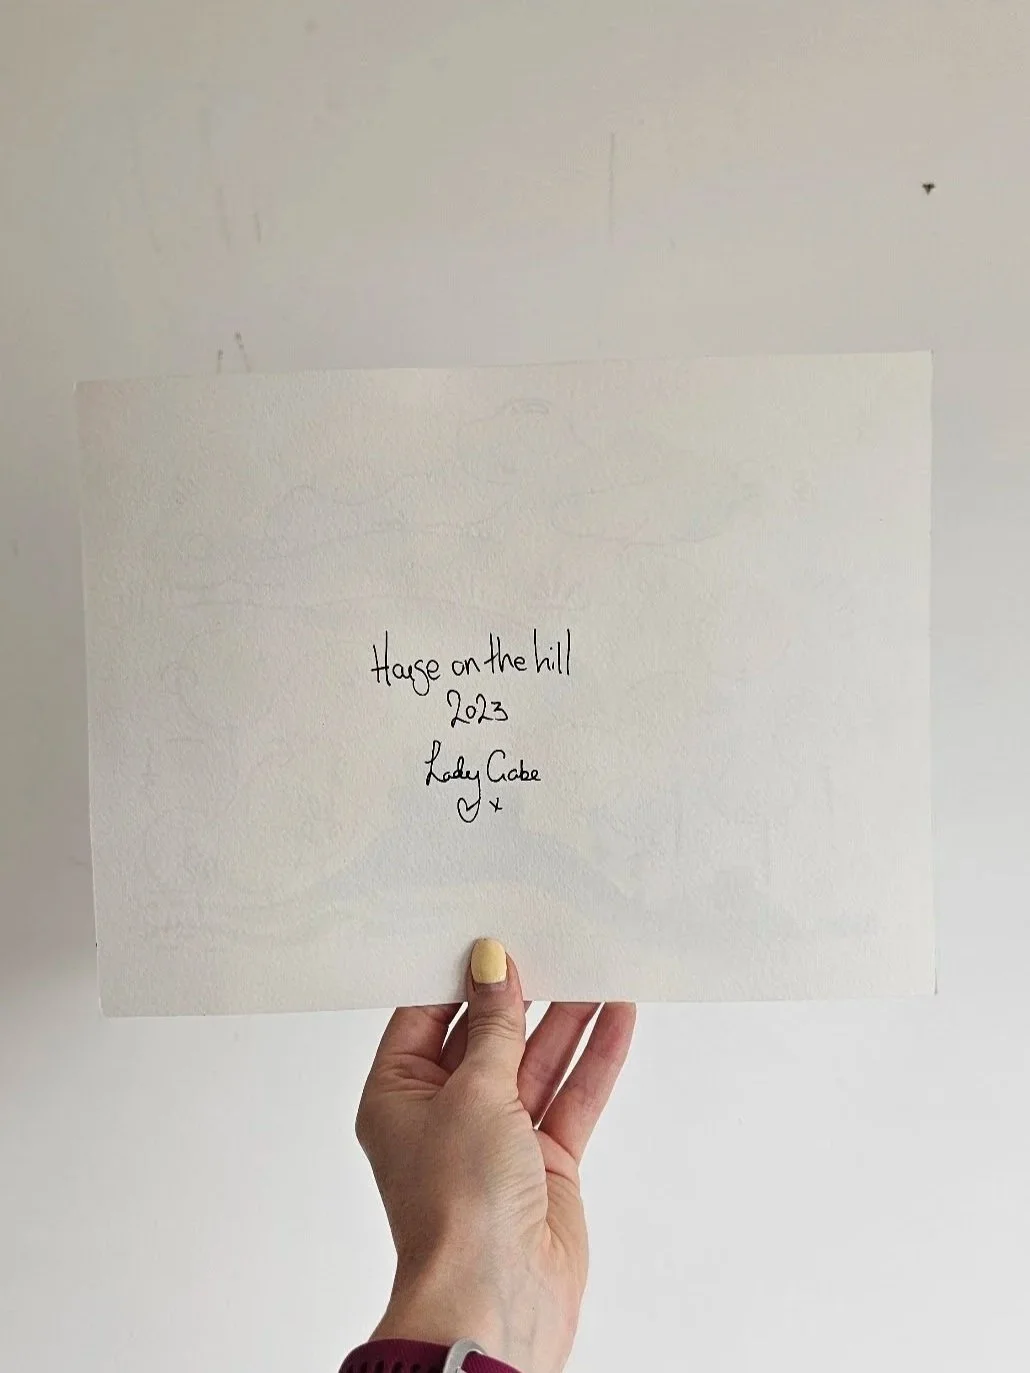 House on the hill
2023
Lady Gabe
♡ x